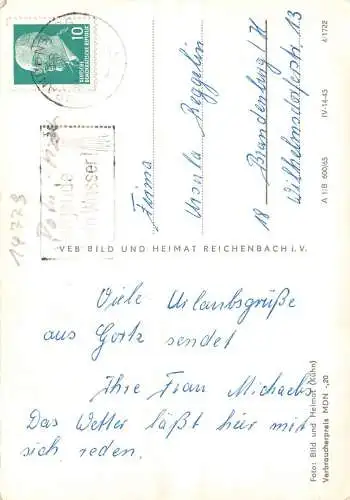 10
DEUTSCHE
DEMOKRATISCHE REPUBLIK
Firma
Ursula Reggelin
18 Brandenburg/H
Wilhelmsdorferstr. 13
4/1722
IV-14-45
A 1/B 600/65
14723
VEB BILD UND HEIMAT REICHENBACH i. V.
Viele Urlaubsgrüße
aus Gortz sendet
Ihre Frau Michaels
Das Wetter läßt hier mit
sich reden.
Foto: Bild und Heimat (Kühn)
Verbraucherpreis MDN -,20